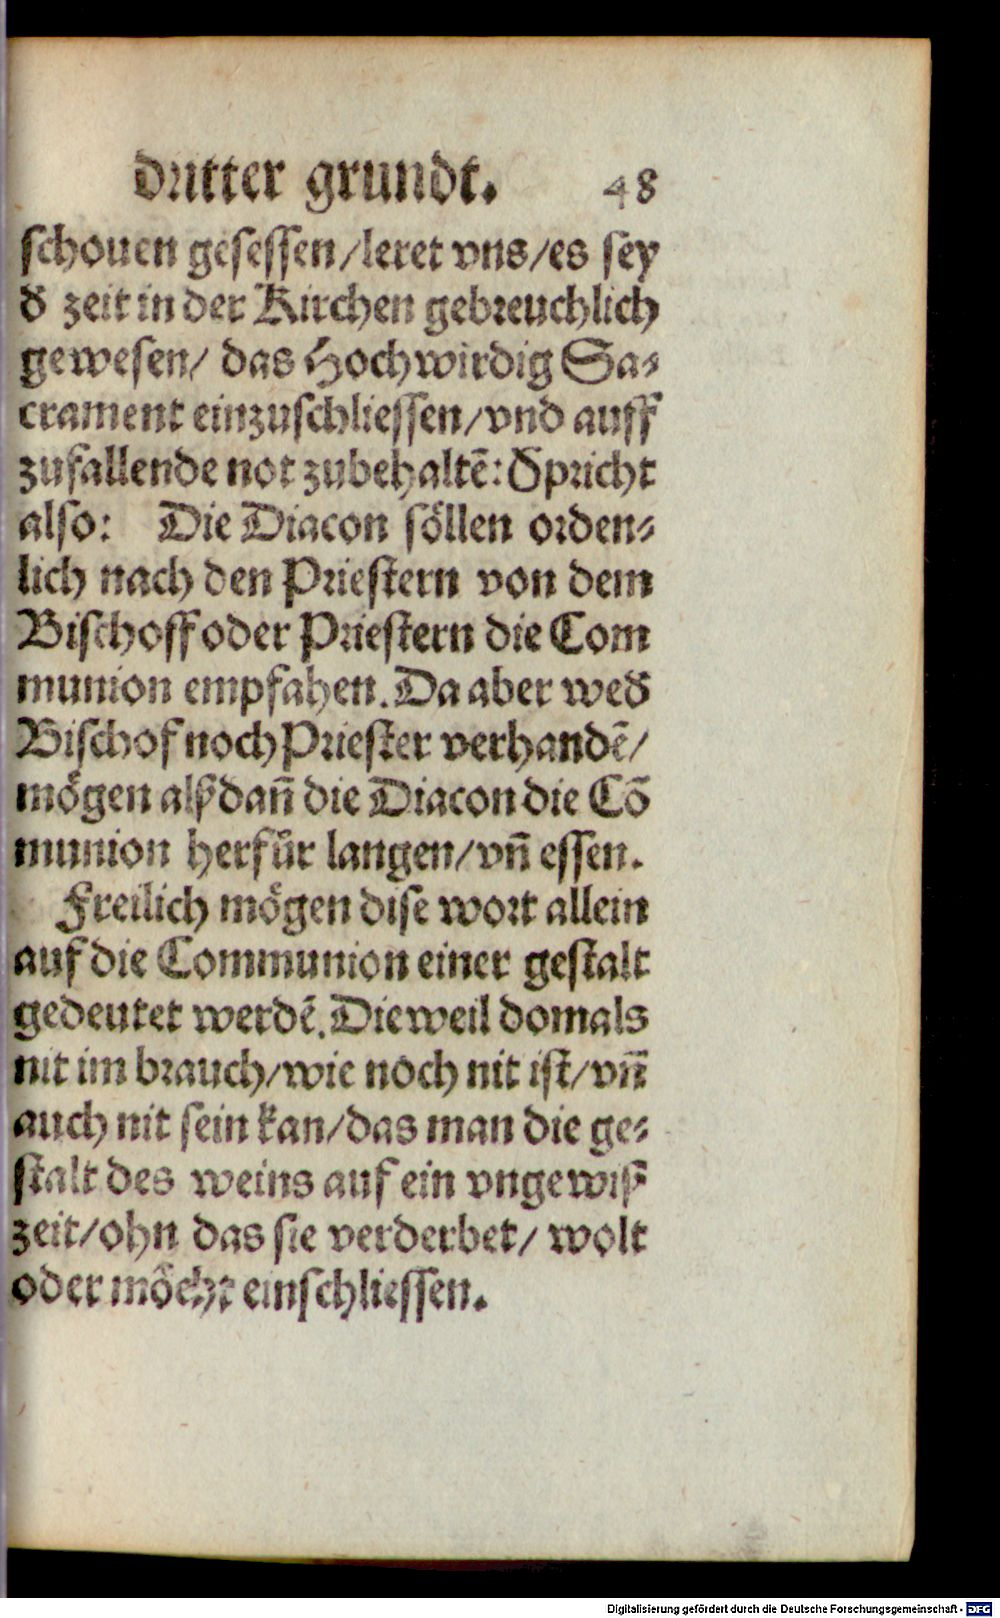 dritter grundt. 48
schouen gesessen/leret vns/es sey
đ zeit in der Kirchen gebreuchlich
gewesen/ das Hochwirdig Sa⸗
crament einzuschliessen/vnd auff
zufallende not zubehaltē: Spricht
also: Die Diacon söllen orden⸗
lich nach den Priestern von dem
Bischoff oder Priestern die Com
munion empfahen. Da aber weđ
Bischof noch Priester verhandē/
mögen alßdañ die Diacon die Cō
munion herfür langen/vñ essen.
Freilich mögen dise wort allein
auf die Communion einer gestalt
gedeutet werdē. Dieweil domals
nit im brauch/wie noch nit ist/vñ
auch nit sein kan/das man die ge⸗
stalt des weins auf ein vngewiß
zeit/ohn das sie verderbet/ wolt
oder möcht einschliessen.
Digitalisierung gefördert durch die Deutsche Forschungsgemeinschaft - DFG